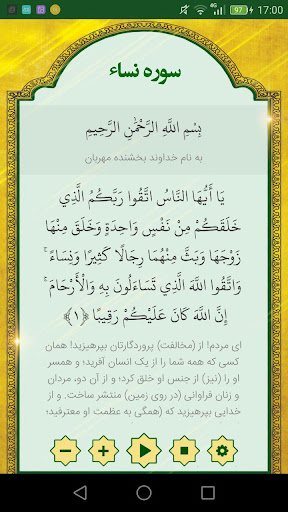 4G 97 17:00
سوره نساء
بِسْمِ اللَّهِ الرَّحْمَٰنِ الرَّحِيمِ
به نام خداوند بخشنده مهربان
يَا أَيُّهَا النَّاسُ اتَّقُوا رَبَّكُمُ الَّذِي
خَلَقَكُمْ مِنْ نَفْسٍ وَاحِدَةٍ وَخَلَقَ مِنْهَا
زَوْجَهَا وَبَثَّ مِنْهُمَا رِجَالًا كَثِيرًا وَنِسَاءً ۚ
وَاتَّقُوا اللَّهَ الَّذِي تَسَاءَلُونَ بِهِ وَالْأَرْحَامَ ۚ
إِنَّ اللَّهَ كَانَ عَلَيْكُمْ رَقِيبًا ﴿١﴾
ای مردم! از (مخالفت) پروردگارتان بپرهیزید! همان
کسی که همه شما را از یک انسان آفرید؛ و همسر
او را (نیز) از جنس او خلق کرد؛ و از آن دو، مردان
و زنان فراوانی (در روی زمین) منتشر ساخت. و از
خدایی بپرهیزید که (همگی به عظمت او معترفید؛